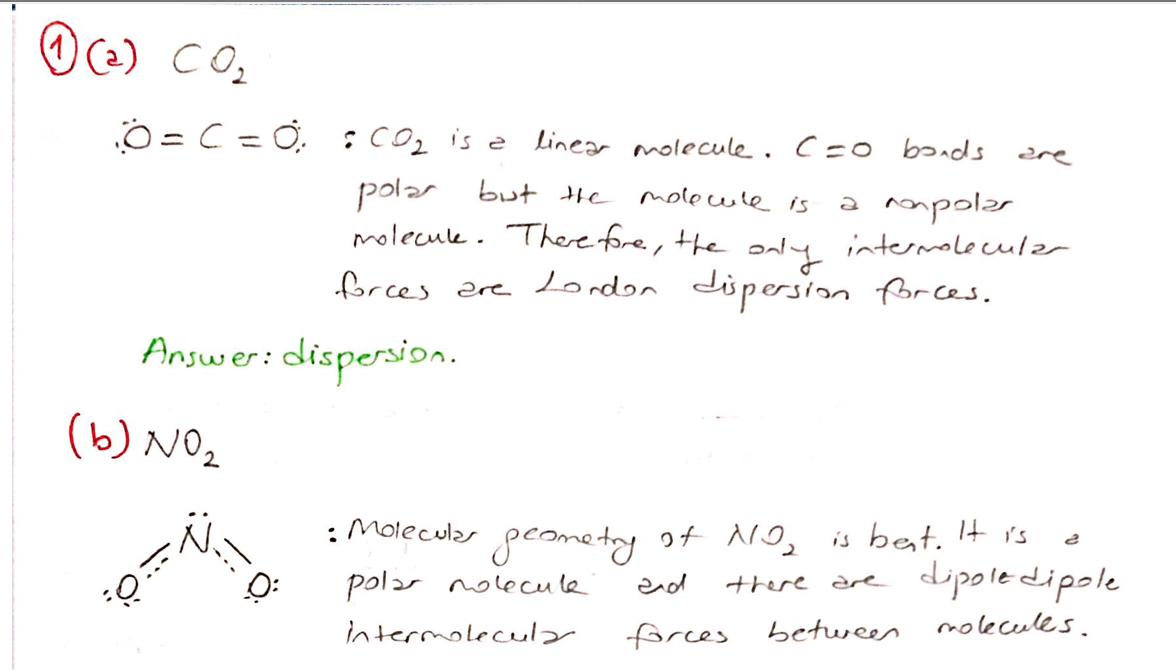 ① (a) CO₂
:Ö=C=Ö: : CO₂ is a linear molecule. C=O bonds are
polar but the molecule is a nonpolar
molecule. Therefore, the only intermolecular
forces are London dispersion forces.
Answer: dispersion.
(b) NO₂
N : Molecular geometry of NO₂ is bent. It is a
:O O: polar molecule and there are dipole dipole
intermolecular forces between molecules.